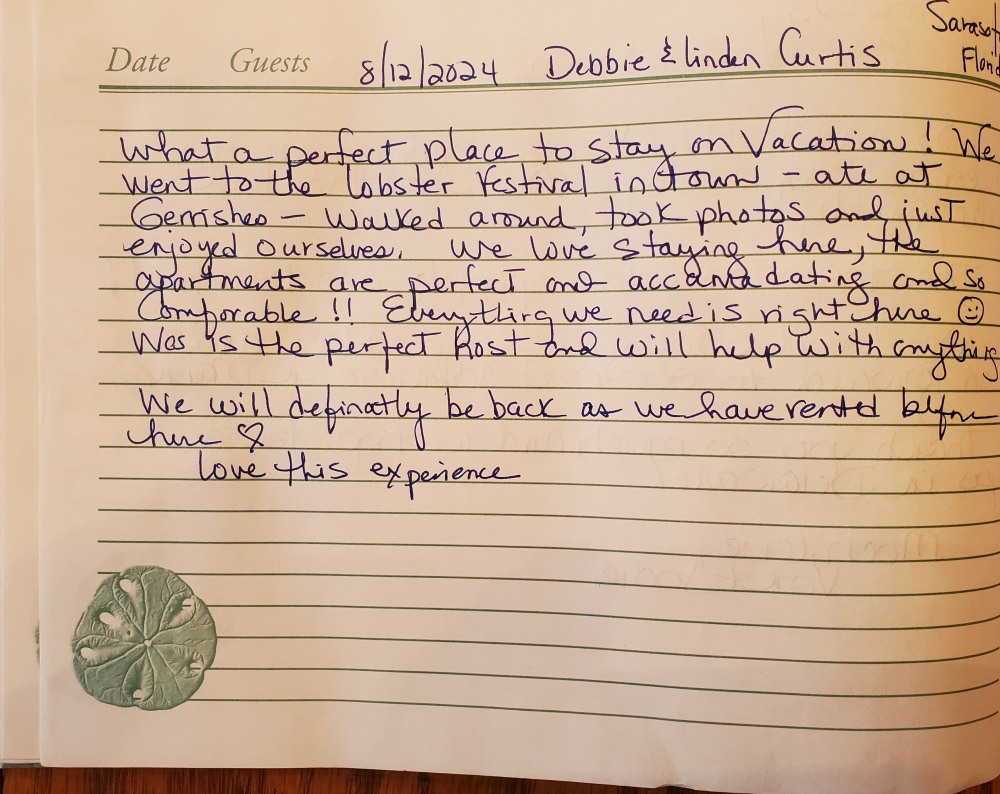 Sarasot
Date Guests 8/12/2024 Debbie & Linden Curtis Florid
What a perfect place to stay on Vacation! We
went to the lobster festival in town - ate at
Gerrishes - Walked around, took photos and just
enjoyed ourselves. We love staying here, the
apartments are perfect and accomadating and so
Comforable !! Everything we need is right here ☺
Was is the perfect host and will help with anything
We will definatly be back as we have rented before
here ♡
love this experience